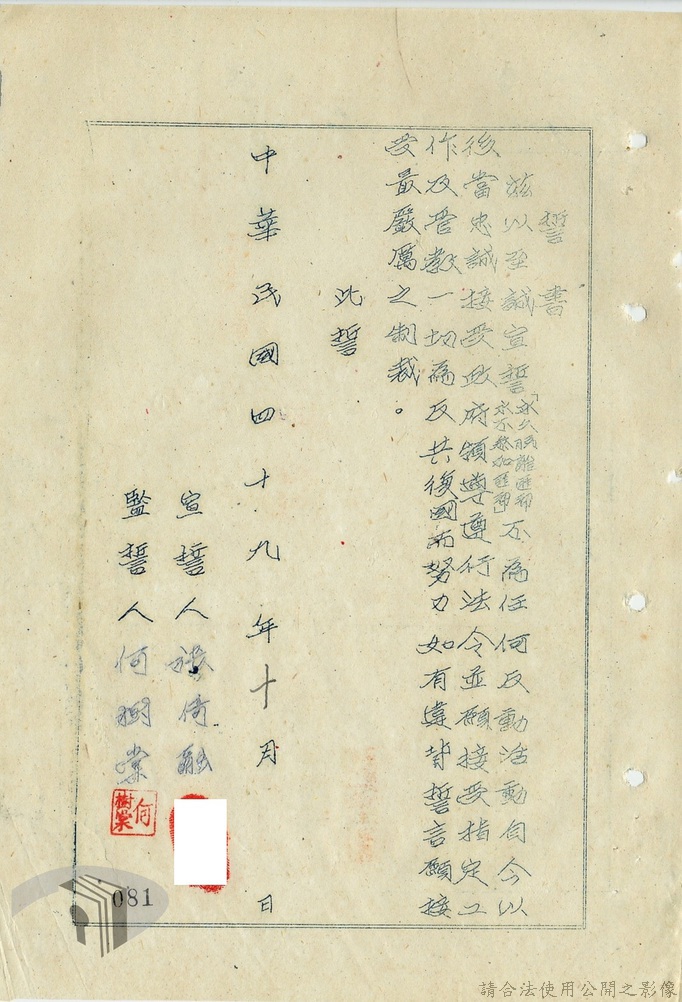 誓書
茲以至誠宣誓「永久脫離匪幫永不參加匪幫」不為任何反動活動自今以
後當忠誠接受政府領導遵行法令並願接受指定工
作及管教一切為反共復國而努力如有違背誓言願接
受最嚴厲之制裁。
此誓
中華民國四十九年十月 日
宣誓人張倚融
監誓人何樹棠
何樹棠
081
請合法使用公開之影像